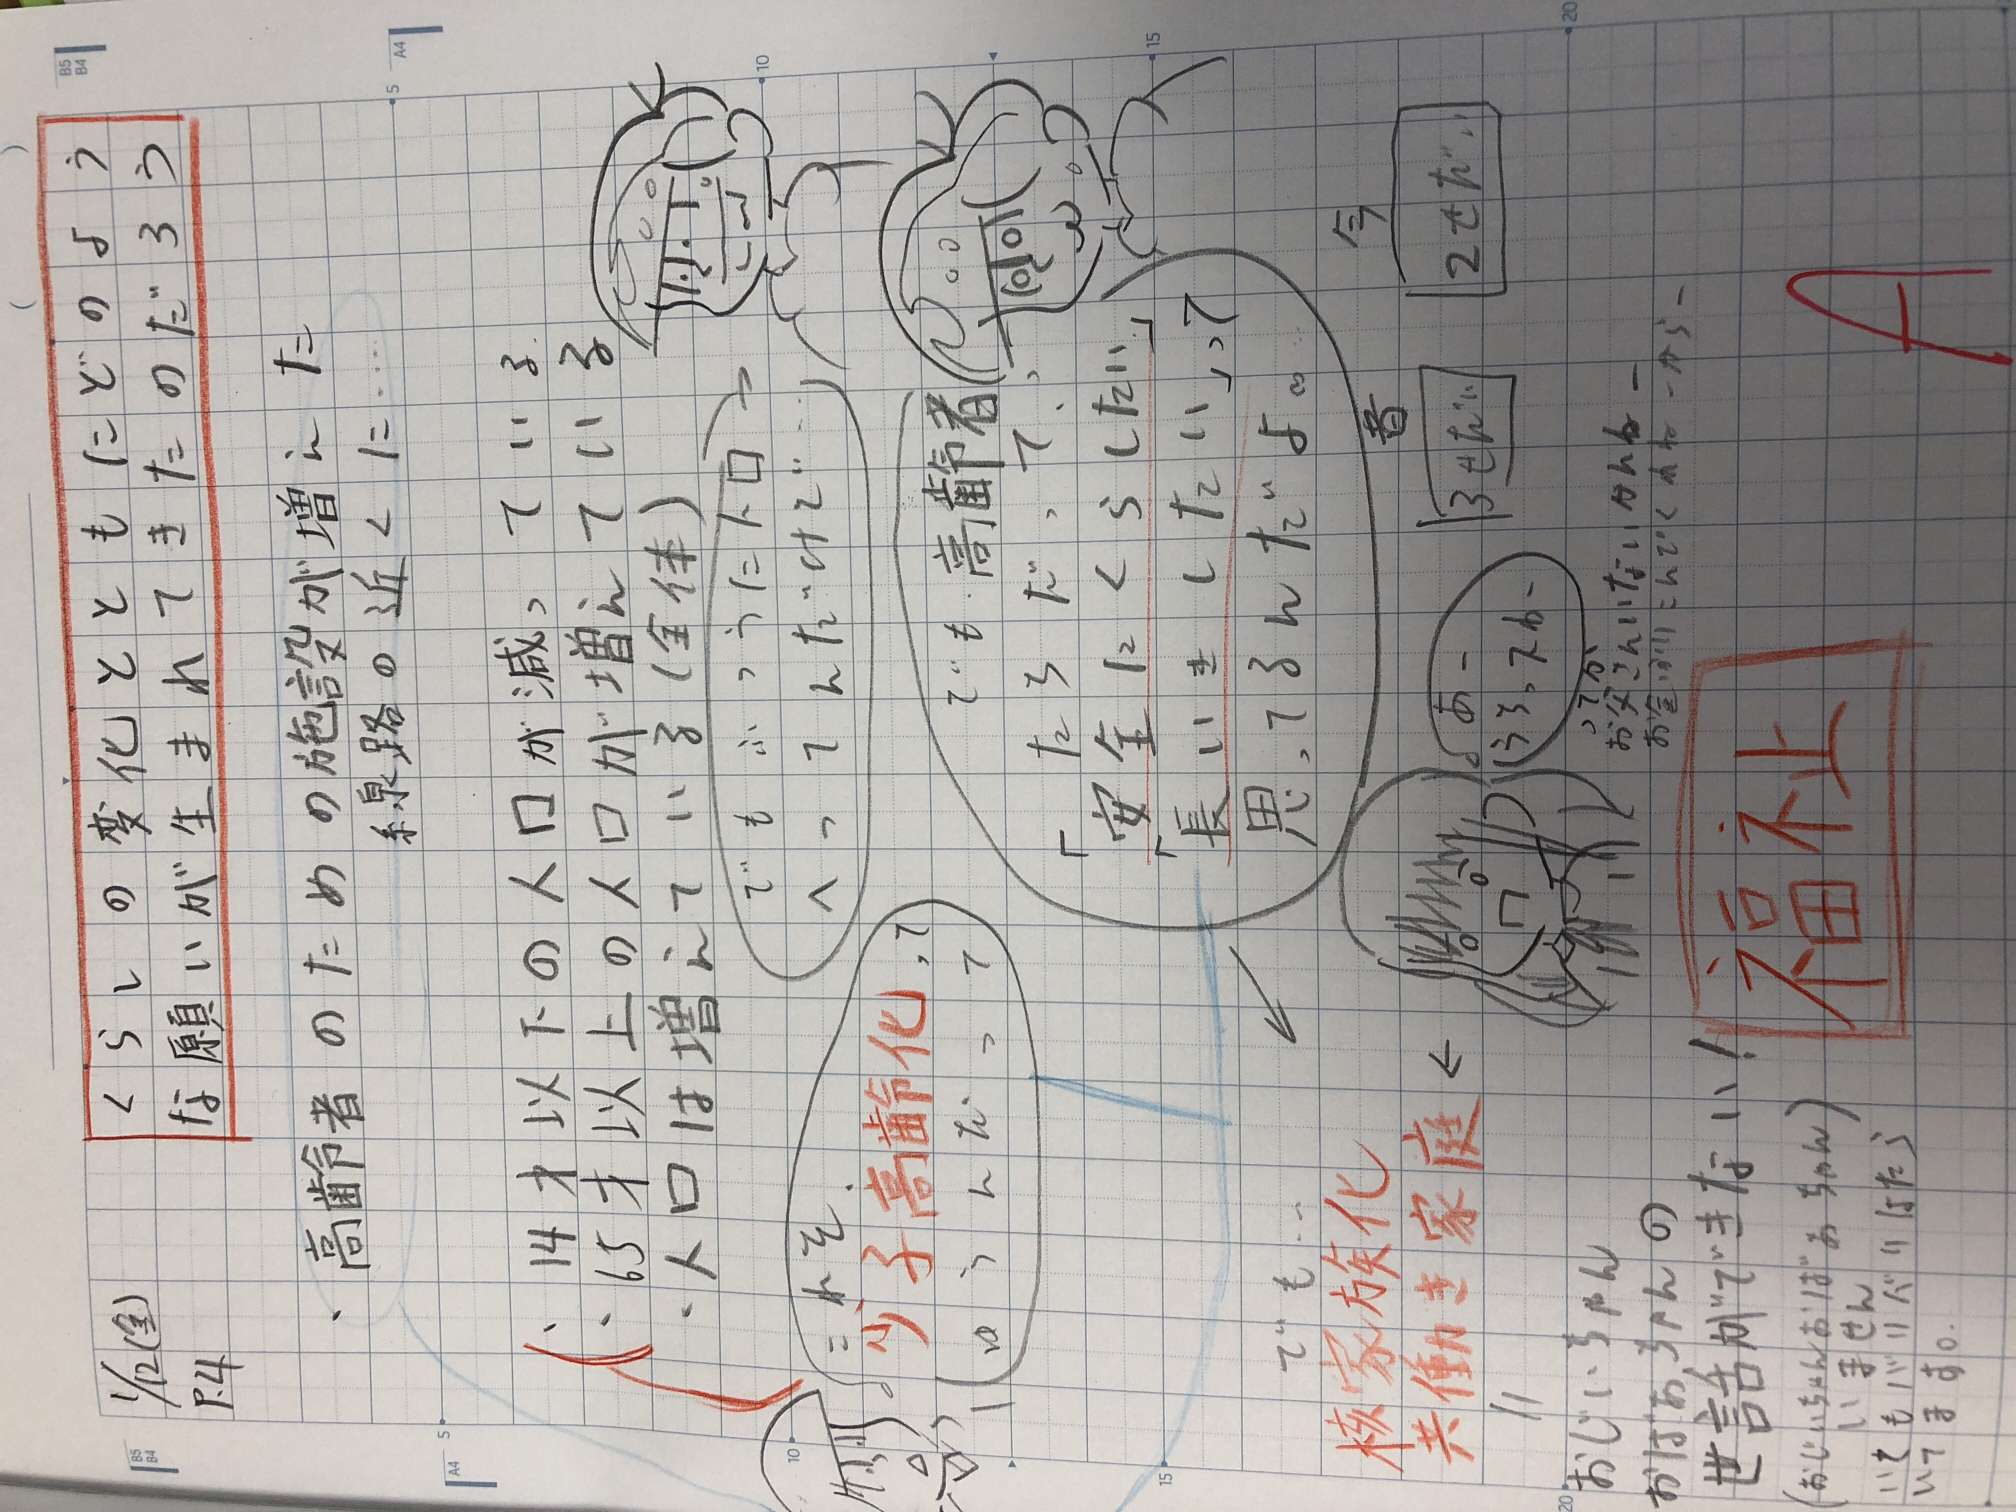 1/12(金)
P.4
くらしの変化とともにどのよう
な願いが生まれてきたのだろう
・高齢者のための施設が増えた
線路の近くに……
・14才以下の人口が減っている
・65才以上の人口が増えている
・人口は増えている(全体)
でもぶっうたト口
へってんだけど…
これを
少子高齢化って
ゆうんだって
でも高齢者
だって、
たちだって、
「安全にくらしたい」
「長いきしたい」って
思ってるんだよ。
でも…
核家族化
共働き家庭
今
2せだい
昔
3せだい
あー
うるっスわー
ってか
お父さんいないかんねー
おじいちゃん
おばあちゃんの
世話ができない!
(おじいちゃんおばあちゃん)
いません
いてもバリバリはたら
いてます。
福祉
A
B5
B4
A4
5
10
15
20
B5
B4
A4
5
10
15
20